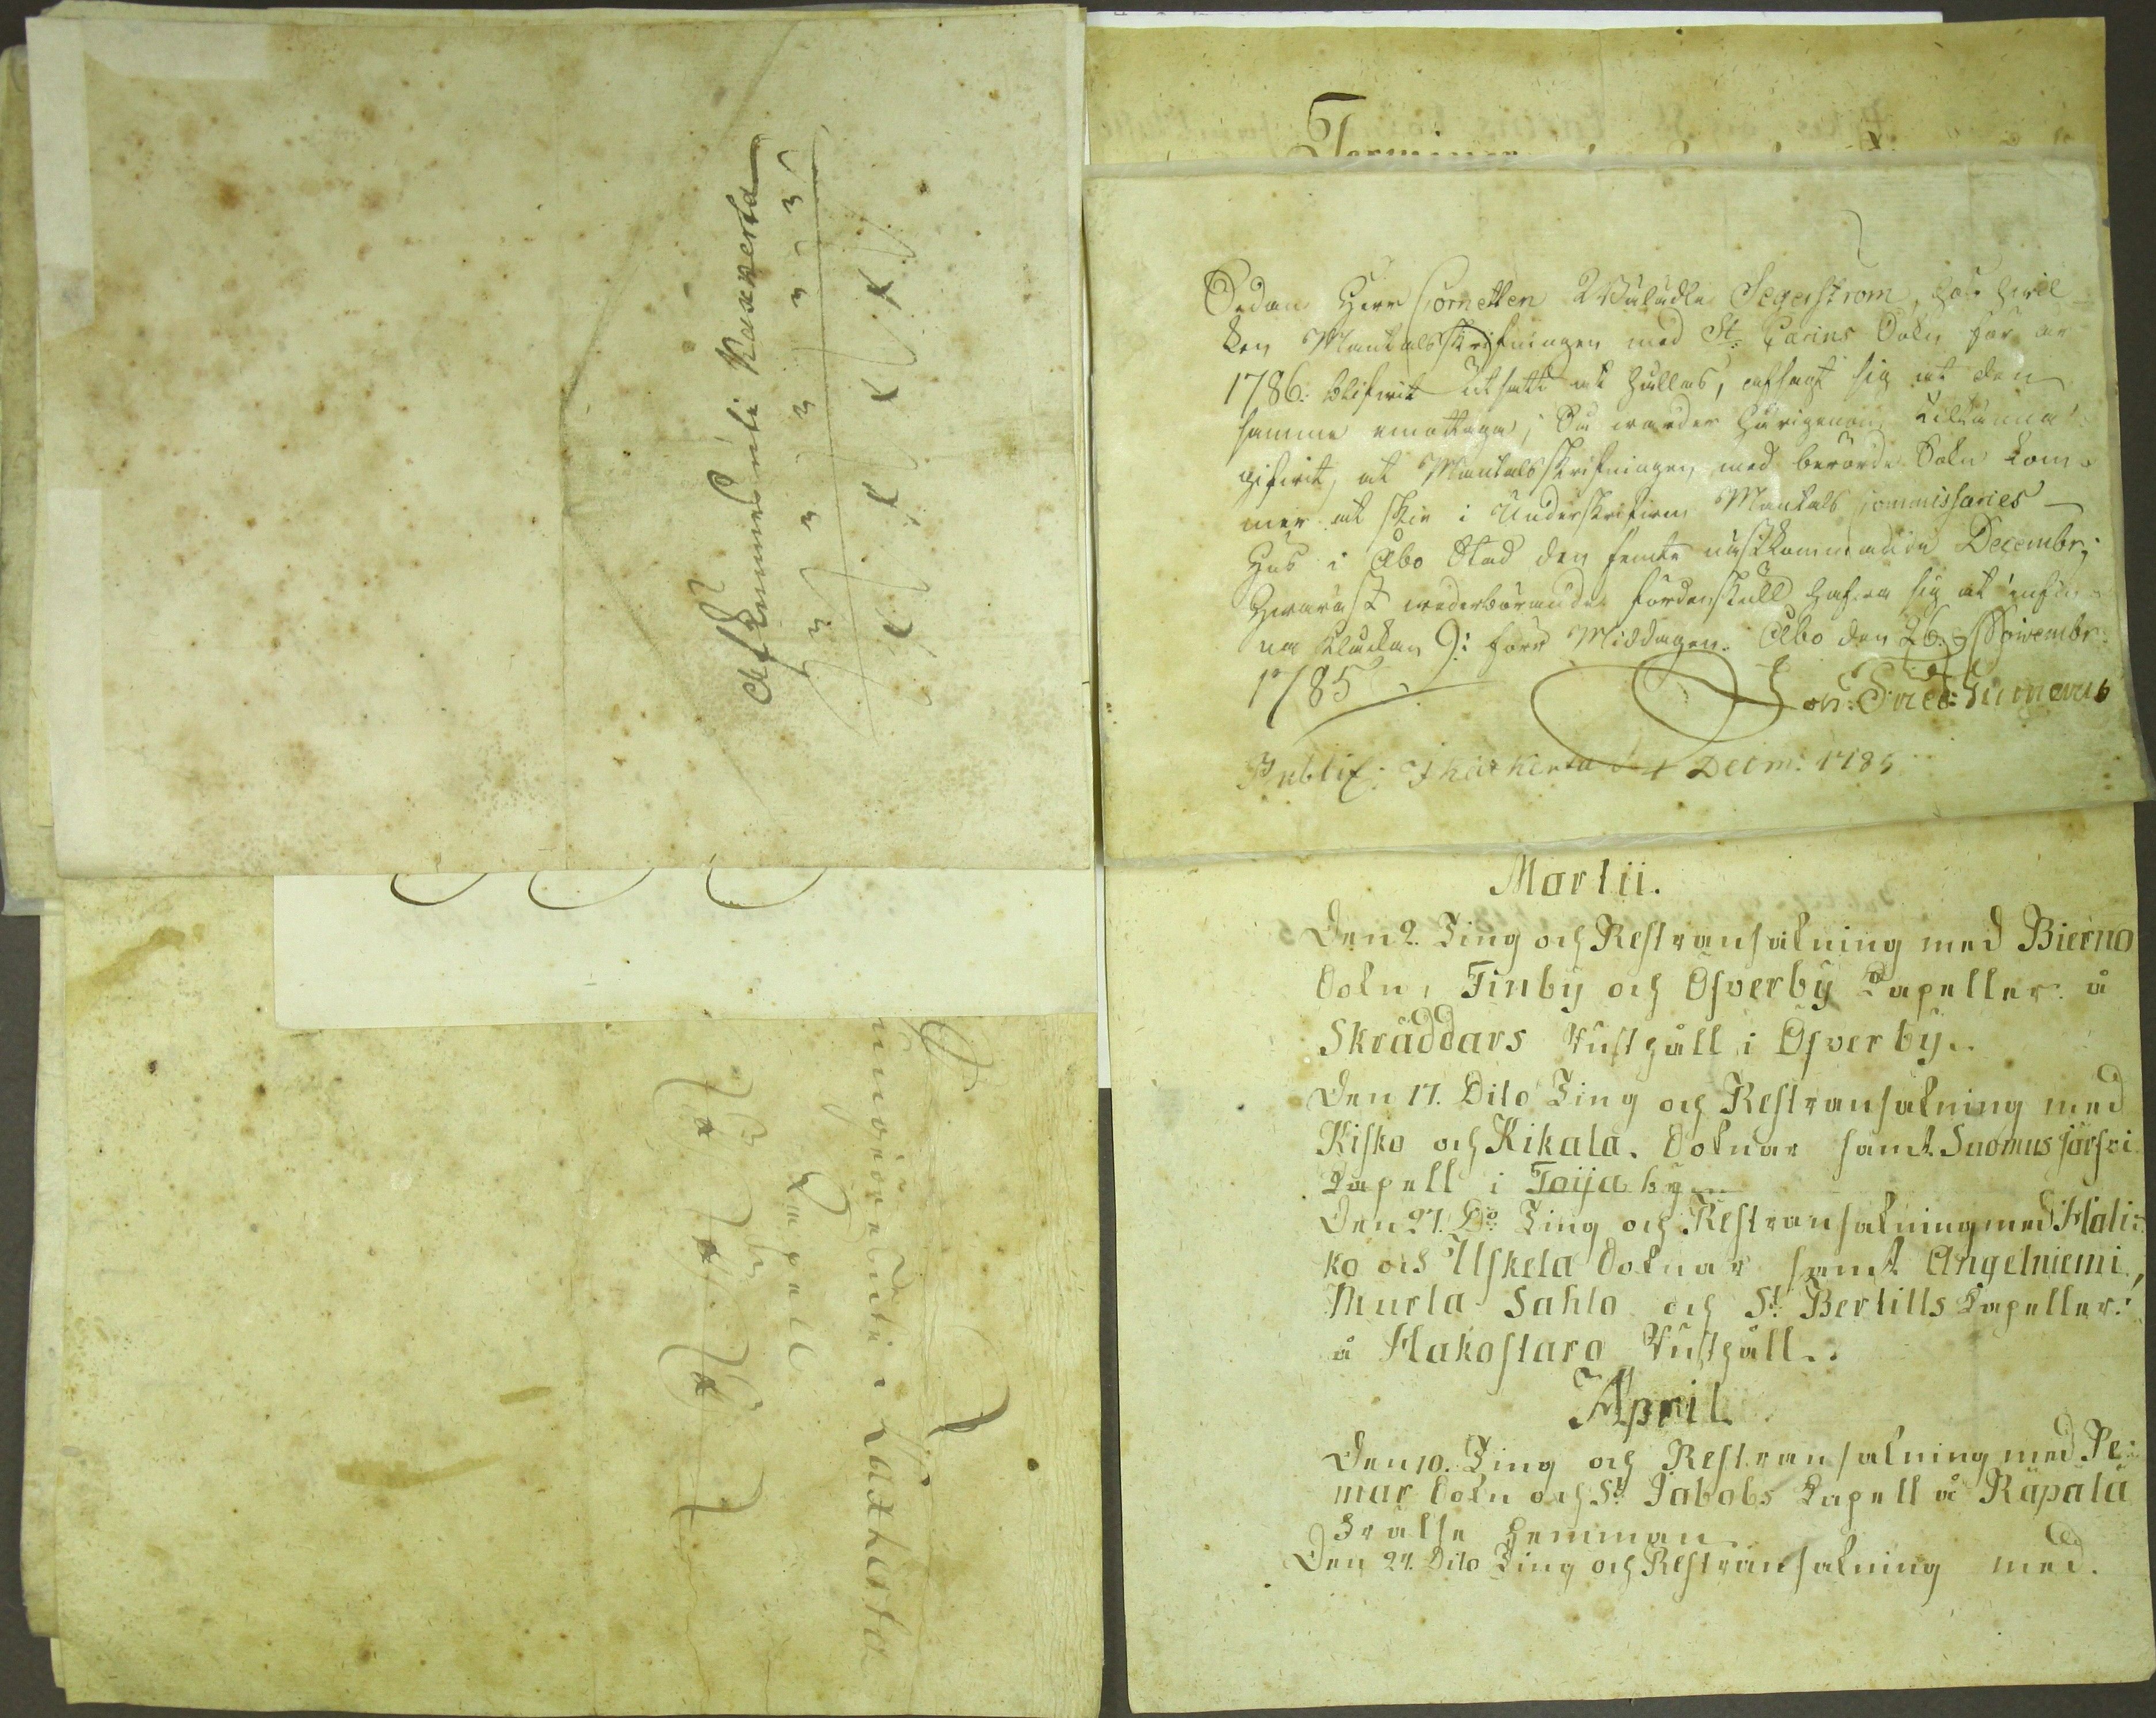 Afkunnes uti Kaxkerta
ungiöres uti Kaxkerta
Capell
Terminer
Sedan Herr Cornetten Wäladle Segerström, hos hvil-
ken Mantalsskrifningen med St. Carins Sokn för år
1786. blifwit utsatt at hållas, afsagt sig at den
samma emottaga; Så warder härigenom tilkänna
gifwit, at Mantalsskrifningen med berörde Sokn kom-
mer at skie i Underskrifwen Mantals Commissaries
Hus i Åbo Stad den femte nästkommande Decembr;
Hwarest wederbörande fördenskull hafwa sig at infin-
na Klockan 9: förr Middagen. Åbo den 26. Novembr.
1785
Joh: Fried:
Public: i Kaxkerta d 4 Decm: 1785
Martii.
Den 2. Ting och Restransakning med Bierno
Sokn, Finby och Ofverby Capeller å
Skräddars Rusthåll i Ofverby.
Den 17. Dito Ting och Restransakning med
Kisko och Kikala Soknar samt Suomusjärfvi
Capell i Toija by
Den 27. Do Ting och Restransakning med Hali-
ko och Uskela Soknar samt Angelniemi,
Muurla Sahlo och St. Bertills Capeller
å Hakostaro Rusthåll.
April
Den 10. Ting och Restransakning med Pe-
mar Sokn och St. Jakobs Capell å Räpälä
Frälse Hemman
Den 24. Dito Ting och Restransakning med.